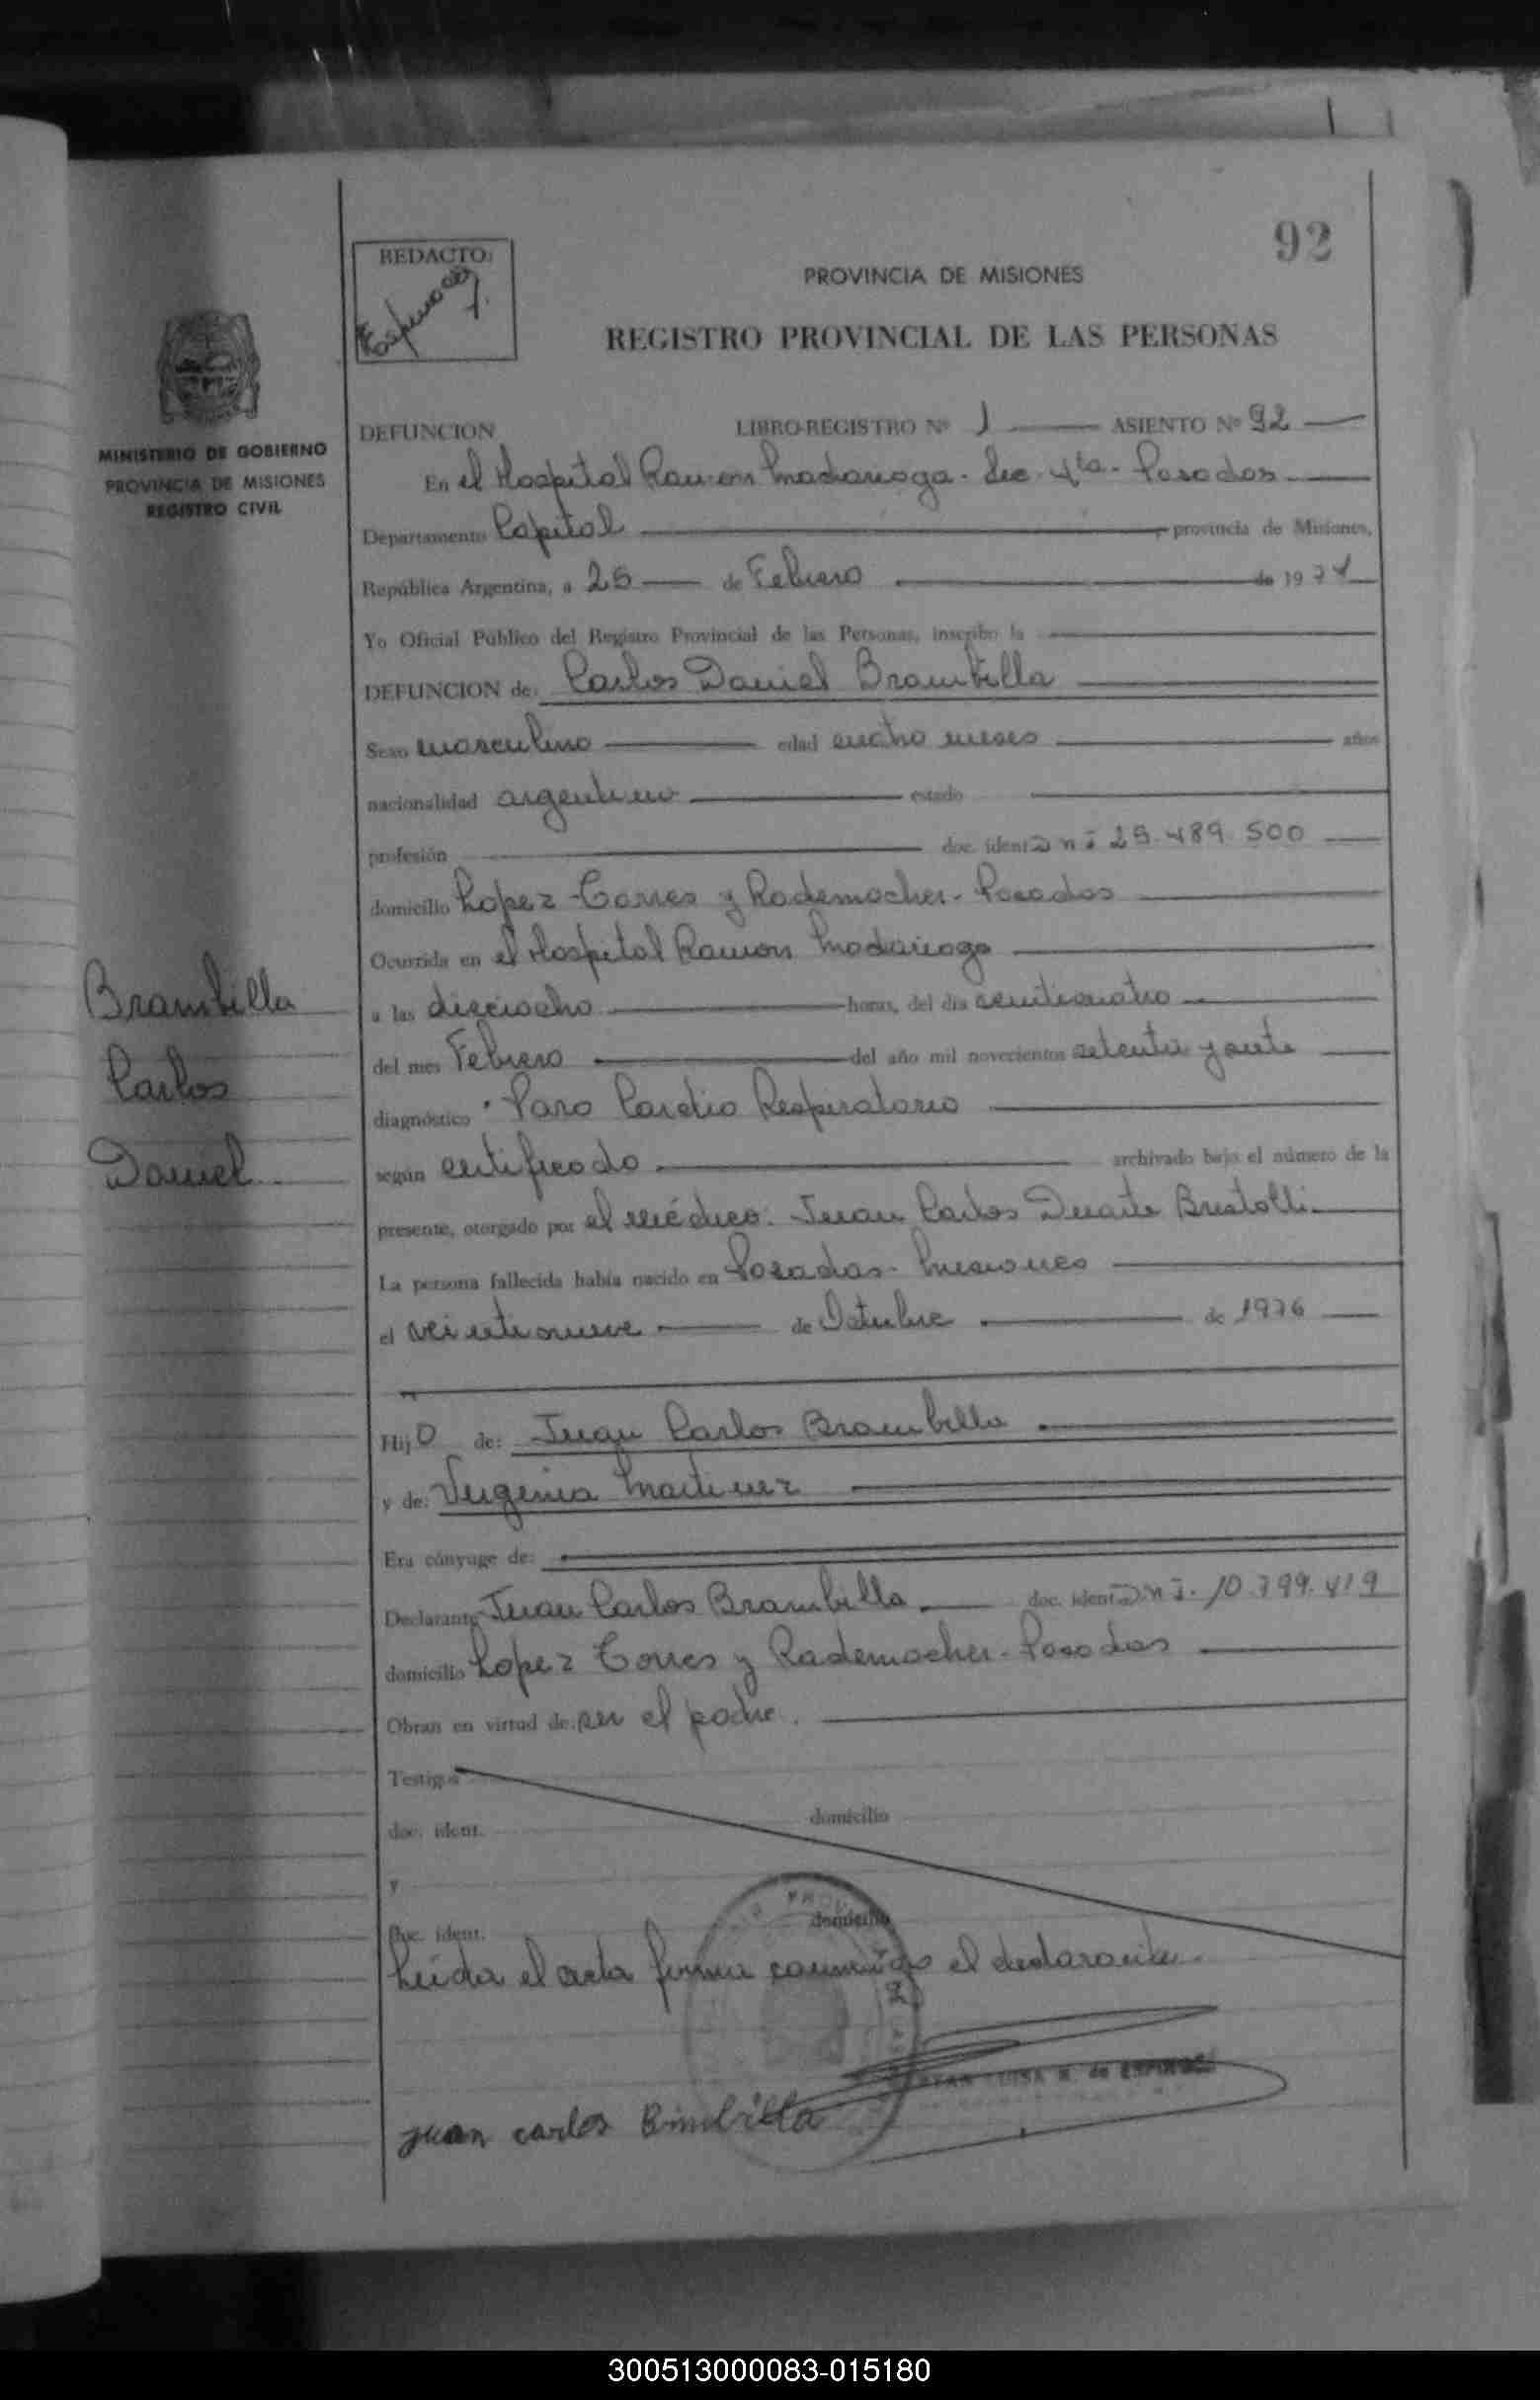 92
REDACTO:
Espinoza
PROVINCIA DE MISIONES
REGISTRO PROVINCIAL DE LAS PERSONAS
MINISTERIO DE GOBIERNO
PROVINCIA DE MISIONES
REGISTRO CIVIL
DEFUNCION LIBRO-REGISTRO Nº 1 ASIENTO Nº 92
En el Hospital Ramon Madariaga - Sec. 4ta - Posadas
Departamento Capital provincia de Misiones,
República Argentina, a 25 de Febrero de 1977
Yo Oficial Público del Registro Provincial de las Personas, inscribo la
DEFUNCION de: Carlos Daniel Brambilla
Sexo masculino edad cuatro meses años
nacionalidad argentino estado
profesión doc. ident. D n i 25.489.500
domicilio Lopez Torres y Rademacher - Posadas
Ocurrida en el Hospital Ramon Madariaga
a las dieciocho horas, del día veinticuatro
del mes Febrero del año mil novecientos setenta y siete
diagnóstico Paro Cardio Respiratorio
según certificado archivado bajo el número de la
presente, otorgado por el médico. Juan Carlos Duarte
La persona fallecida había nacido en Posadas - Misiones
el veintinueve de Octubre de 1976
Hijo de: Juan Carlos Brambilla
y de: Virginia Martinez
Era cónyuge de:
Declarante Juan Carlos Brambilla doc. ident. D n i. 10.799.419
domicilio Lopez Torres y Rademacher - Posadas
Obran en virtud de: ser el padre.
Testigos
doc. ident. domicilio
y
doc. ident. domicilio
Leída el acta firma conmigo el declarante.
juan carlos
Brambilla
Carlos
Daniel
300513000083-015180